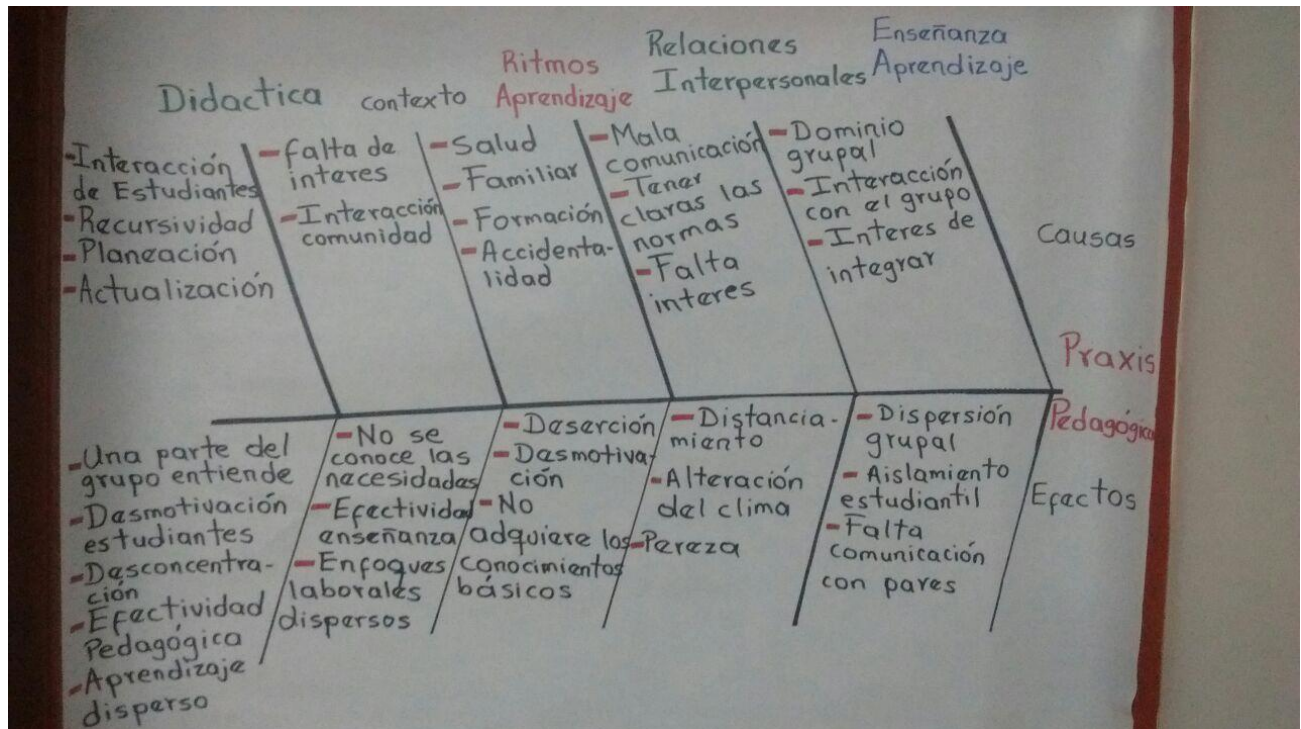 Didactica
contexto
Ritmos
Aprendizaje
Relaciones
Interpersonales
Enseñanza
Aprendizaje
-Interacción
de Estudiantes
-Recursividad
-Planeación
-Actualización
-falta de
interes
-Interacción
comunidad
-Salud
-Familiar
-Formación
-Accidenta-
lidad
-Mala
comunicación
-Tener
claras las
normas
-Falta
interes
-Dominio
grupal
-Interacción
con el grupo
-Interes de
integrar
Causas
Praxis
Pedagógica
-Una parte del
grupo entiende
-Desmotivación
estudiantes
-Desconcentra-
ción
-Efectividad
Pedagógica
-Aprendizaje
disperso
-No se
conoce las
necesidades
-Efectividad
enseñanza
-Enfoques
laborales
dispersos
-Deserción
-Desmotiva-
ción
-No
adquiere los
conocimientos
básicos
-Distancia-
miento
-Alteración
del clima
-Pereza
-Dispersión
grupal
-Aislamiento
estudiantil
-Falta
comunicación
con pares
Efectos